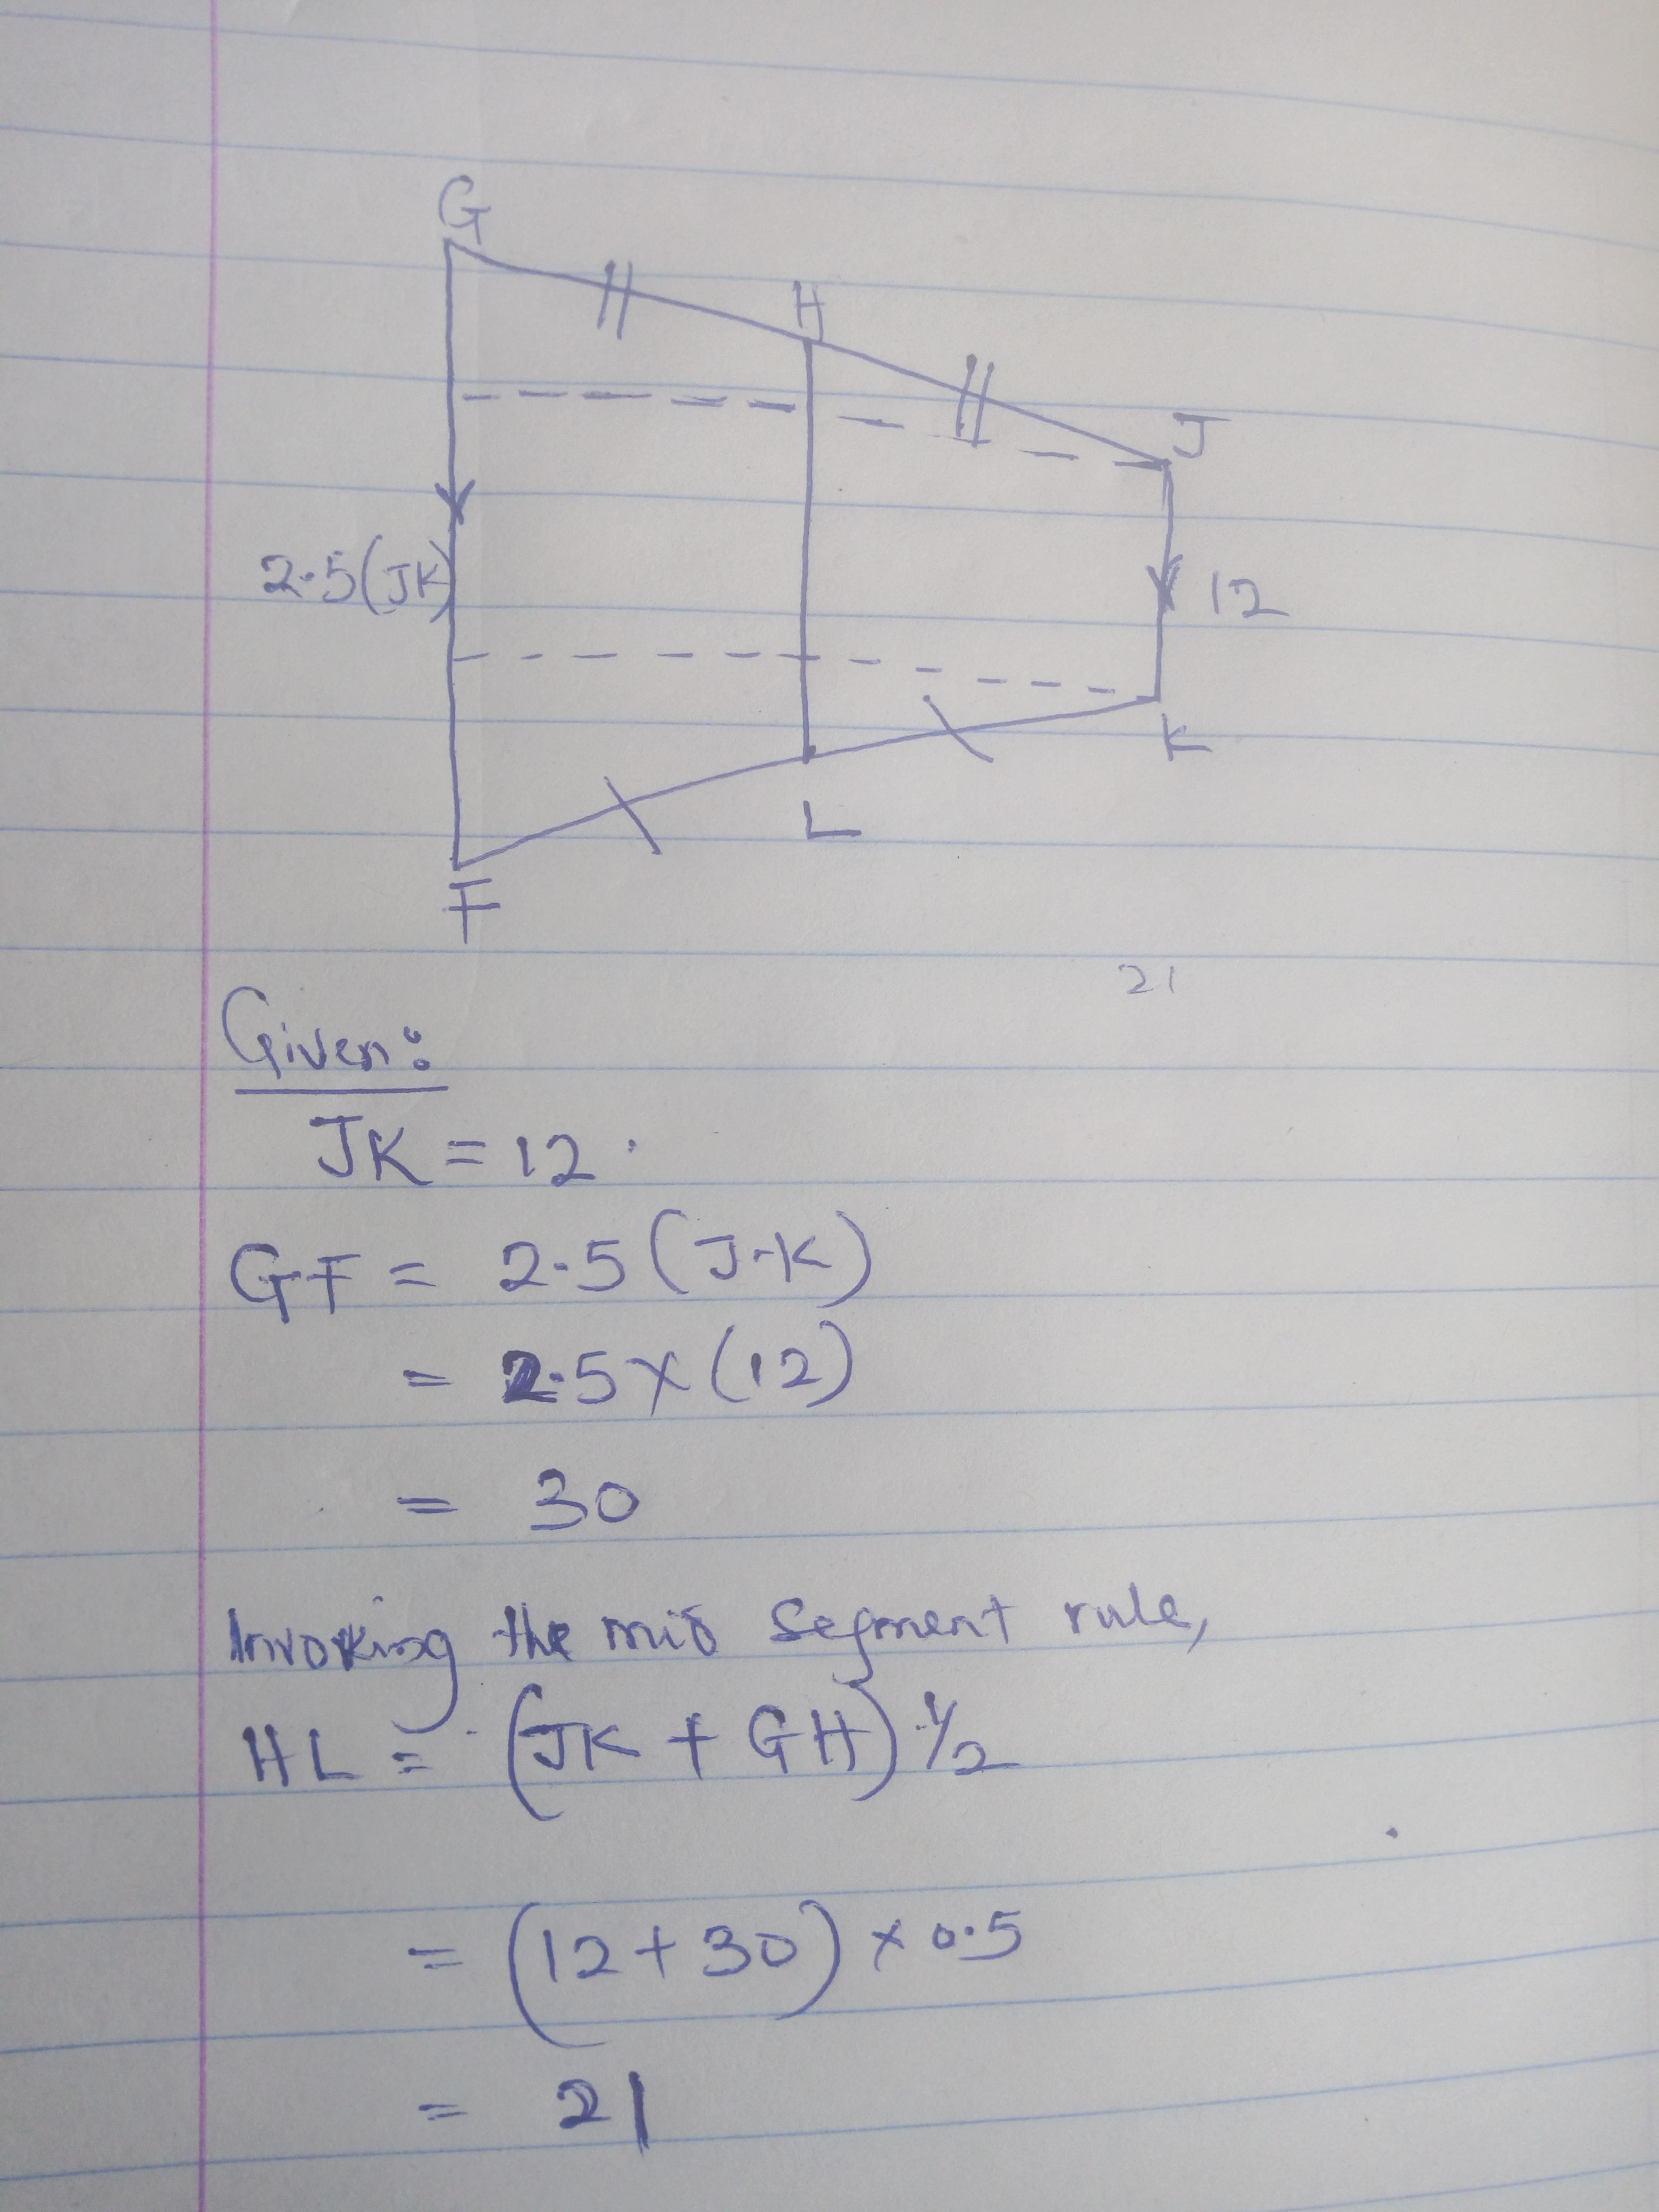 G
H
J
2.5(JK)
12
K
L
F
21
Given:
JK = 12.
GF = 2.5(J-K)
= 2.5 x (12)
= 30
Invoking the mid segment rule,
HL = (JK + GH) 1/2
= (12 + 30) x 0.5
= 21